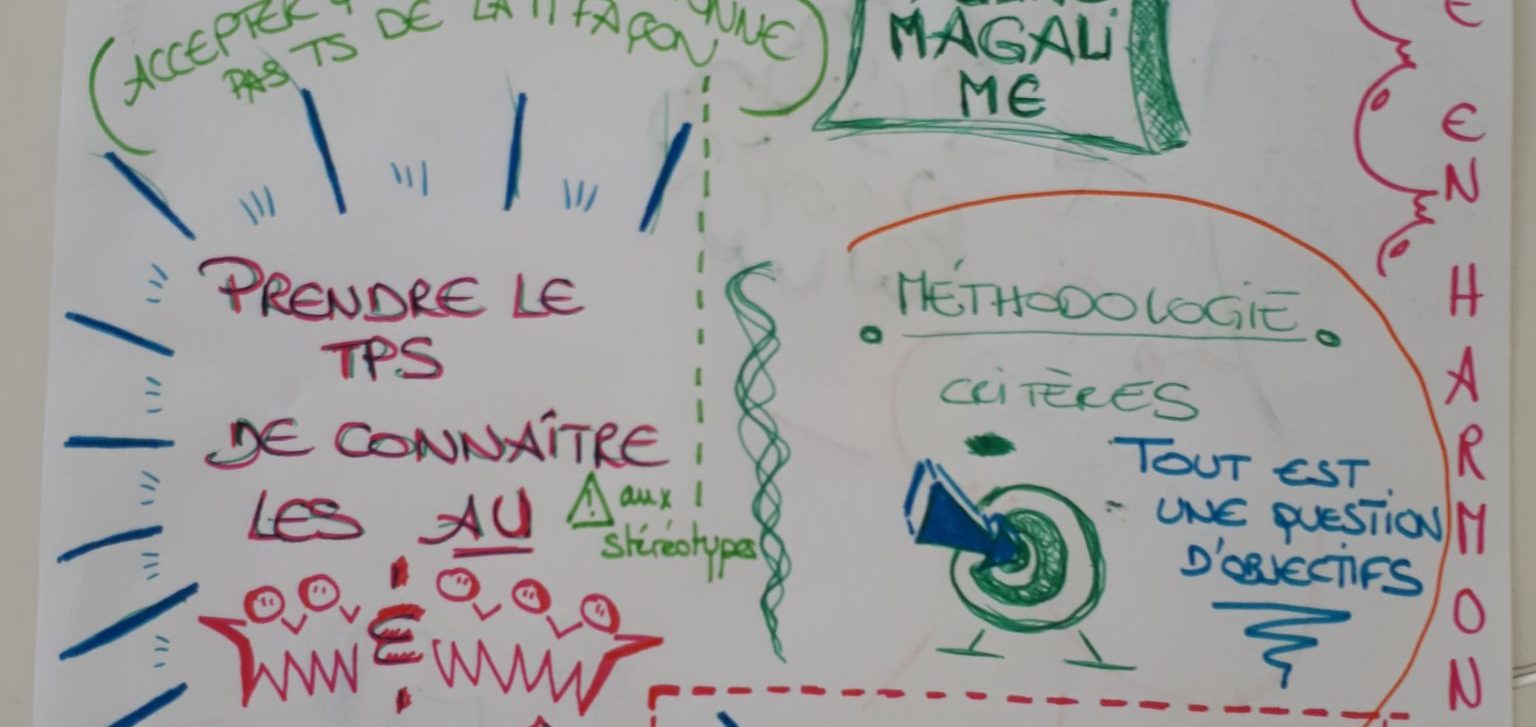 ACCEPTER
PAS TS DE LA M̂ FAÇON
MAGALI
ME
PRENDRE LE
TPS
DE CONNAÎTRE
LES AU
⚠ aux
stéréotypes
&
MÉTHODOLOGIE
CRITÈRES
TOUT EST
UNE QUESTION
D'OBJECTIFS
E
EN
HARMON